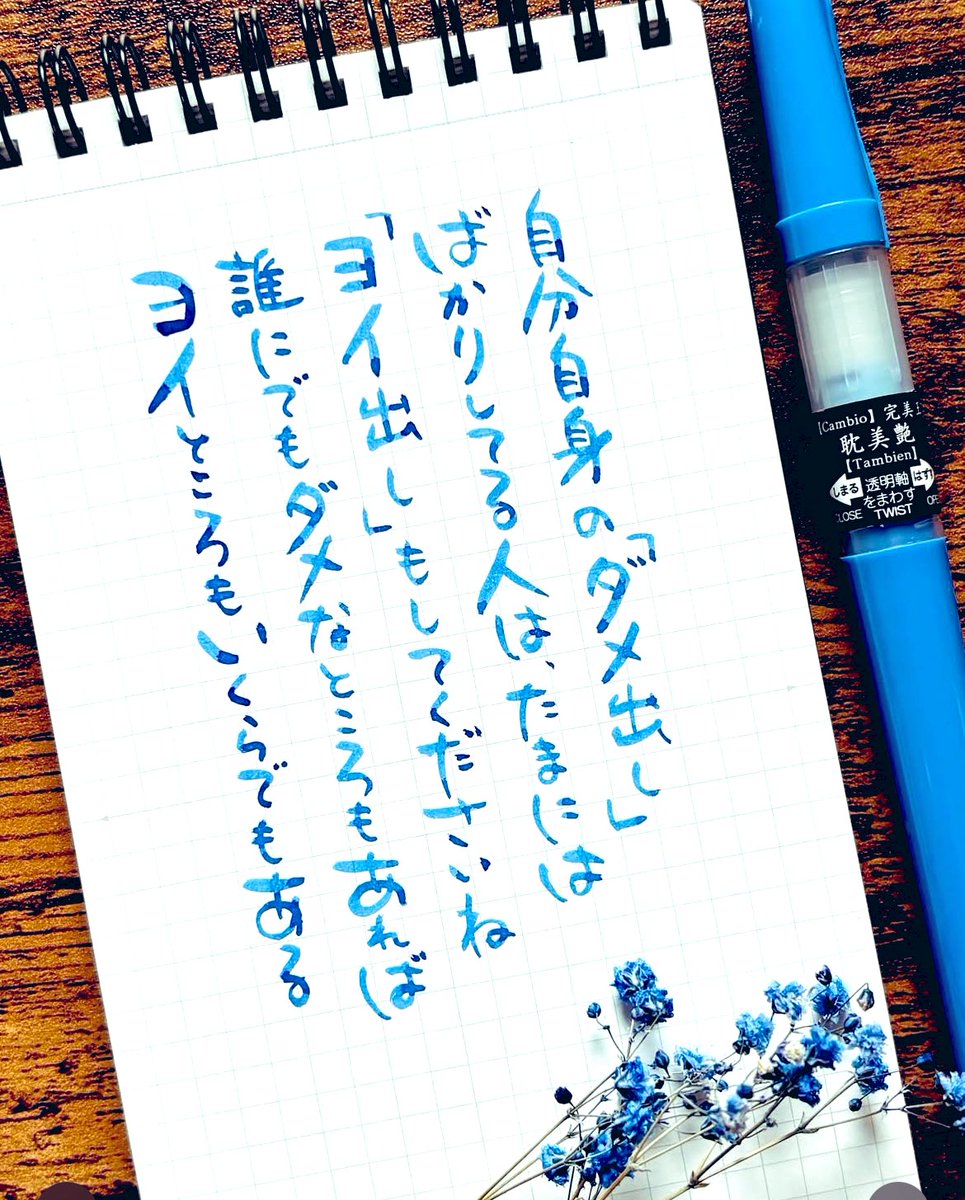 自分自身の「ダメ出し」
ばかりしてる人は、たまには
「ヨイ出し」もしてくださいね
誰にでもダメなところもあれば
ヨイところもいくらでもある
【Cambio】完美
耽美艶
【Tambien】
しまる 透明軸 はず
をまわす
CLOSE TWIST